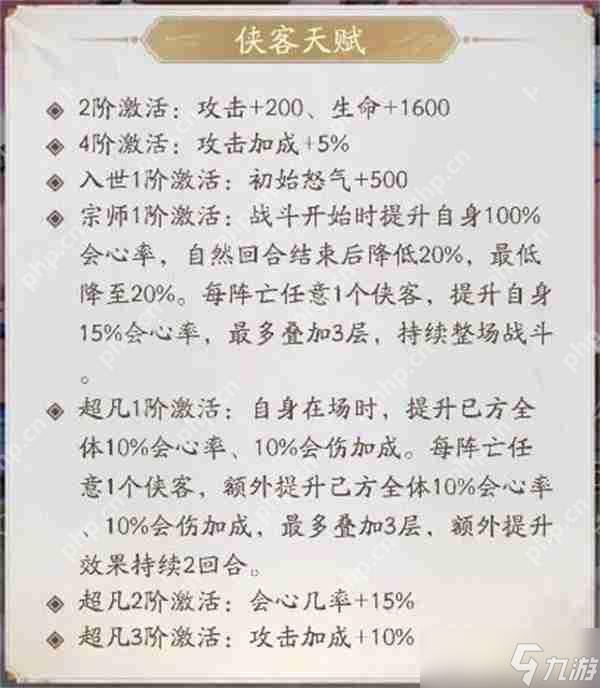 侠客天赋
2阶激活：攻击+200、生命+1600
4阶激活：攻击加成+5%
入世1阶激活：初始怒气+500
宗师1阶激活：战斗开始时提升自身100%
会心率，自然回合结束后降低20%，最低
降至20%。每阵亡任意1个侠客，提升自身
15%会心率，最多叠加3层，持续整场战斗
。
超凡1阶激活：自身在场时，提升己方全
体10%会心率、10%会伤加成。每阵亡任
意1个侠客，额外提升己方全体10%会心率
、10%会伤加成，最多叠加3层，额外提升
效果持续2回合。
超凡2阶激活：会心几率+15%
超凡3阶激活：攻击加成+10%
九游
php.cn